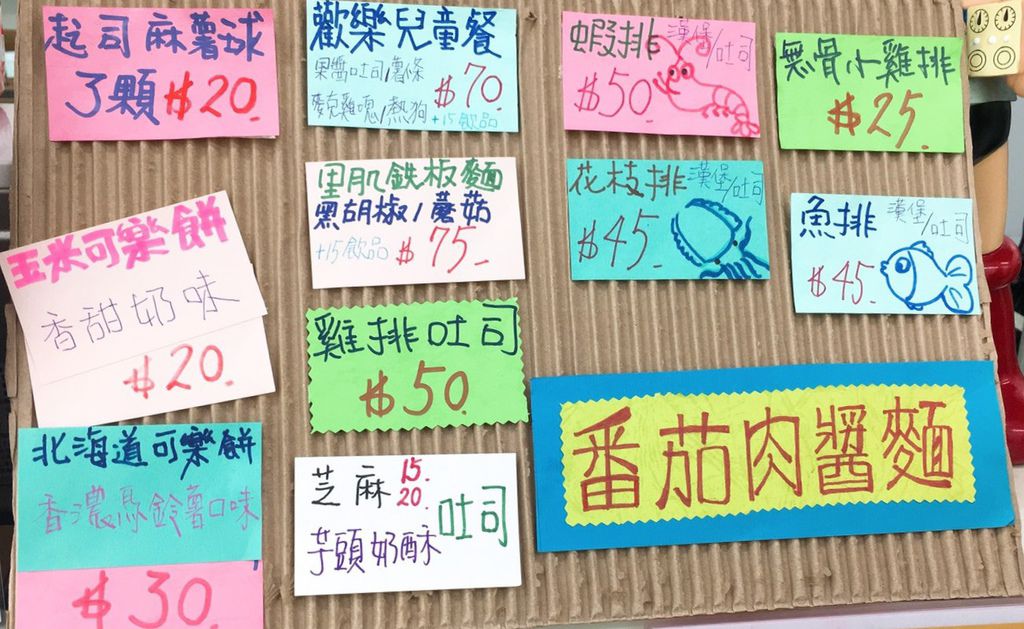 起司麻薯球
3顆 $20.
歡樂兒童餐
果醬吐司/薯條
麥克雞塊/熱狗
$70.
+15飲品
蝦排 漢堡/吐司
$50.
無骨小雞排
$25.
里肌鉄板麵
黑胡椒/蘑菇
+15飲品 $75.
花枝排 漢堡/吐司
$45.
魚排 漢堡/吐司
$45.
玉米可樂餅
香甜奶味
$20.
雞排吐司
$50.
番茄肉醬麵
北海道可樂餅
香濃馬鈴薯口味
$30.
芝麻 15. 20. 吐司
芋頭奶酥